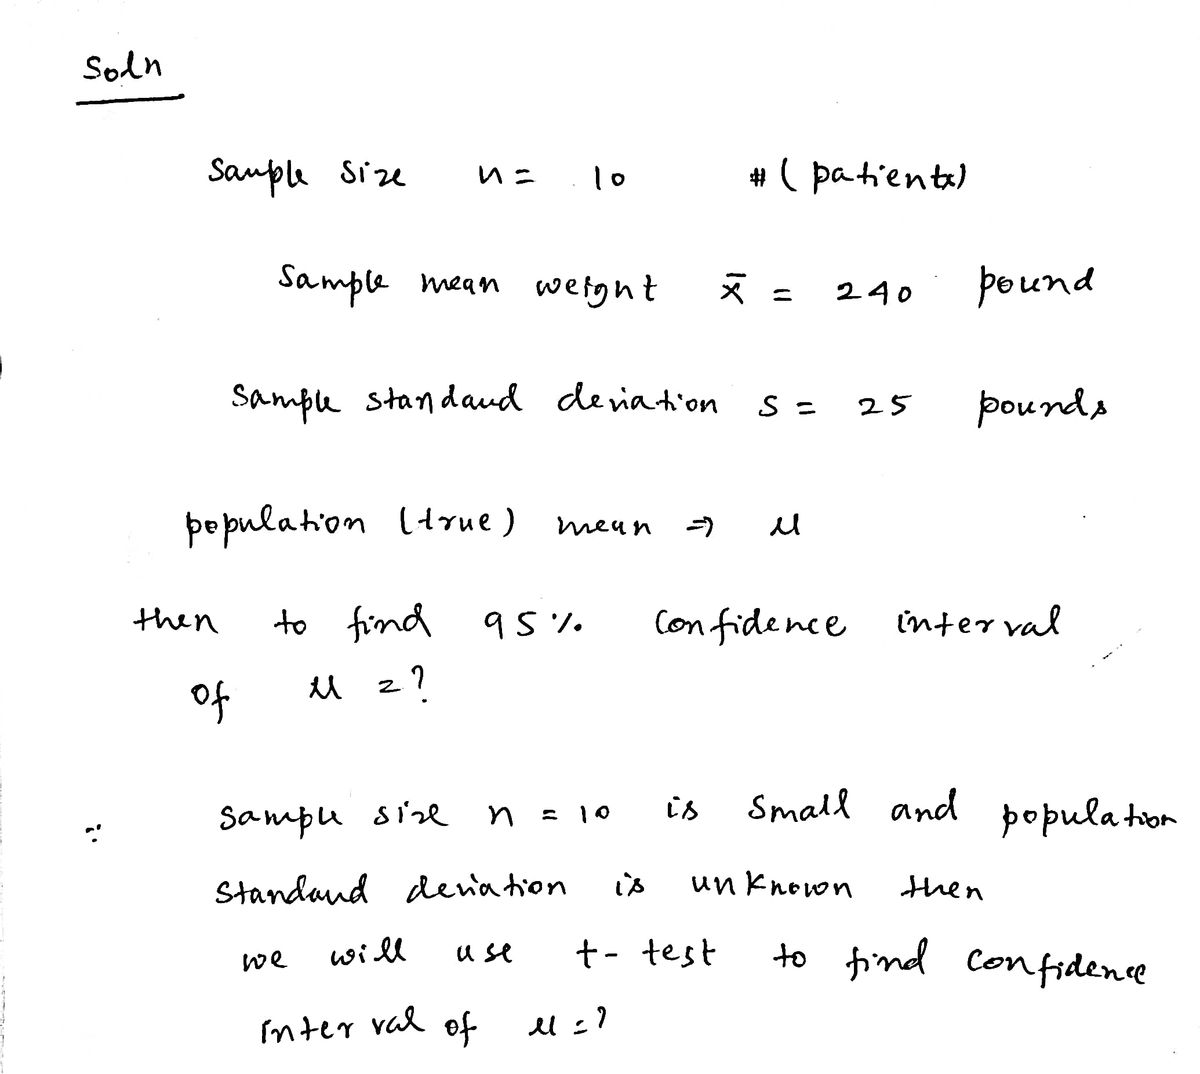 Soln
Sample size n = 10 # (patients)
Sample mean weight x̄ = 240 pound
Sample standard deviation s = 25 pounds
population (true) mean ⇒ μ
then to find 95% Confidence interval
of μ = ?
∵ Sample size n = 10 is small and population
Standard deviation is unknown then
we will use t-test to find confidence
interval of μ = ?